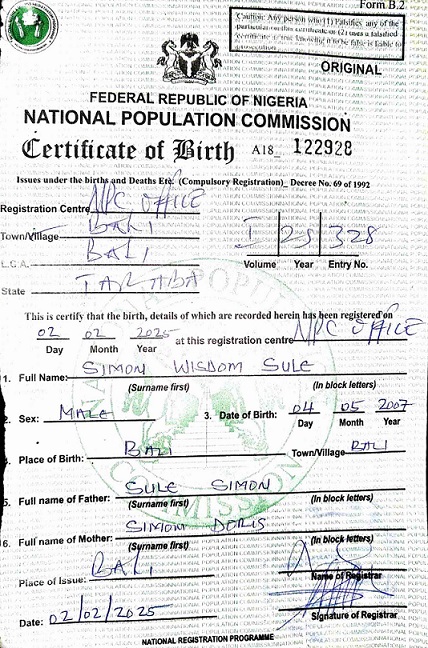 Form B.2
Caution: Any person who (1) Falsifies any of the
particular on this certificate or (2) uses a falsified
certificate as true knowing it to be false is liable to
prosecution
ORIGINAL
FEDERAL REPUBLIC OF NIGERIA
NATIONAL POPULATION COMMISSION
Certificate of Birth A18_ 122928
Issues under the births and Deaths Etc. (Compulsory Registration)_ Decree No. 69 of 1992
Registration Centre NPC OFFICE
BALI
Town/Village BALI
L.G.A.
State TARABA
I 25 328
Volume Year Entry No.
This is certify that the birth, details of which are recorded herein has been registered on
02 02 2025 at this registration centre NPC OFFICE
Day Month Year
1. Full Name: SIMON WISDOM SULE
(Surname first) (In block letters)
2. Sex: MALE 3. Date of Birth: 04 05 2007
Day Month Year
4. Place of Birth: BALI Town/Village BALI
5. Full name of Father: SULE SIMON
(Surname first) (In block letters)
6. Full name of Mother: SIMON DORIS
(Surname first) (In block letters)
Place of Issue: BALI
Name of Registrar
Date: 02/02/2025
Signature of Registrar
NATIONAL REGISTRATION PROGRAMME